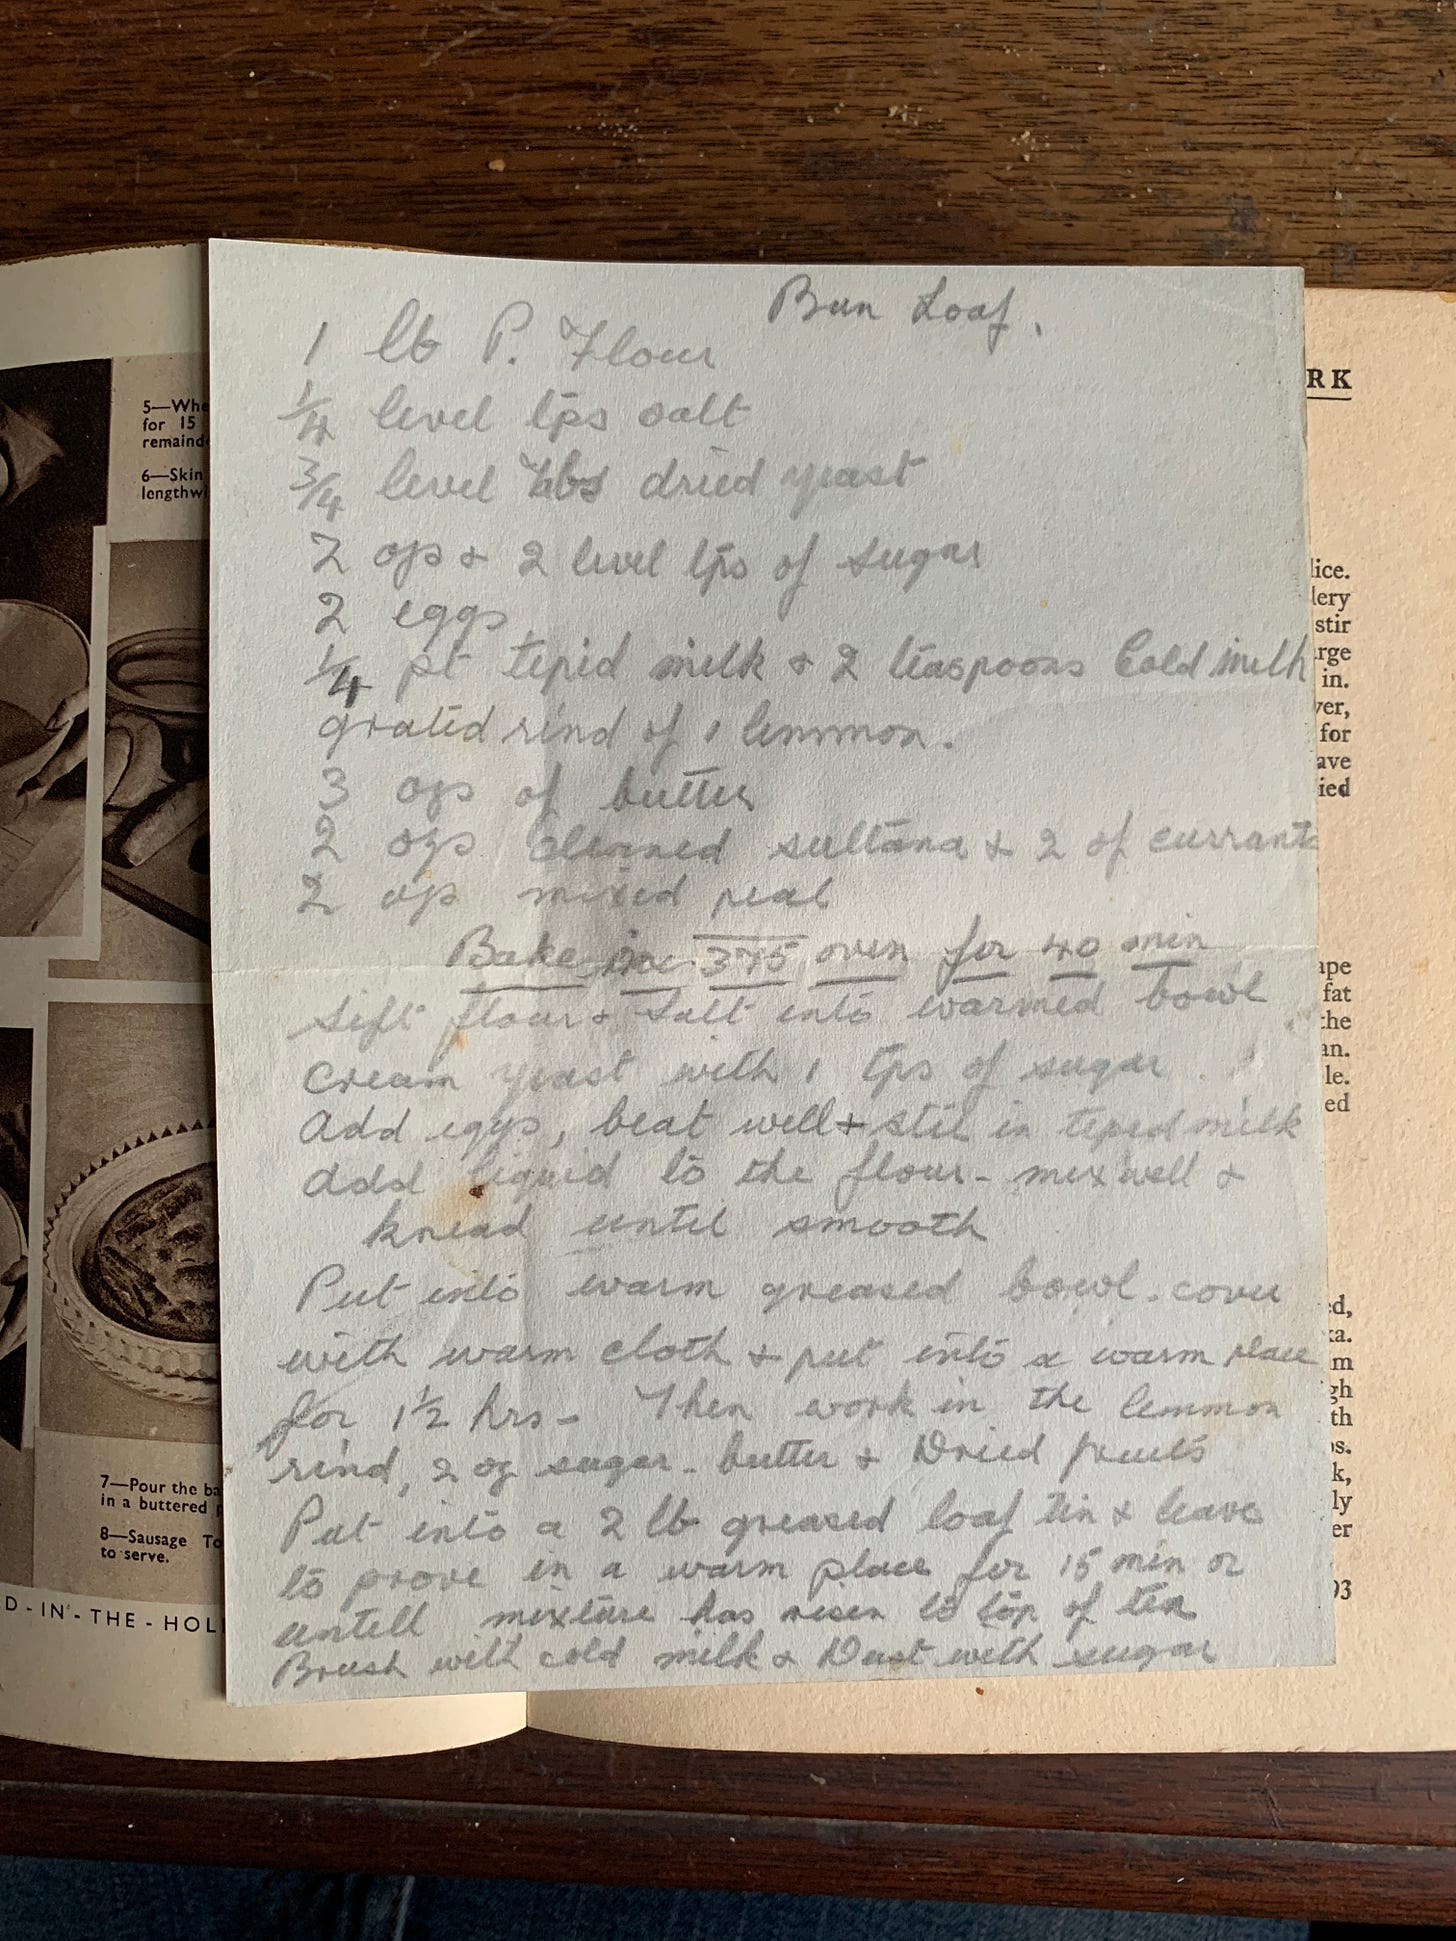 Bun Loaf.
1 lb P. Flour
1/4 level tps salt
3/4 level tbs dried yeast
2 ozs + 2 level tps of sugar
2 eggs
1/4 pt tepid milk + 2 teaspoons Cold milk
grated rind of 1 lemmon.
3 ozs of butter
2 ozs Cleaned sultana + 2 of currants
2 ozs mixed peal
Bake in 375 oven for 40 min
Sift flour + Salt into warmed bowl
Cream yeast with 1 tps of sugar
Add eggs, beat well + stir in teped milk
add liquid to the flour - mix well +
knead until smooth
Put into warm greased bowl. cover
with warm cloth + put into a warm place
for 1 1/2 hrs - Then work in the lemmon
rind, 2 oz sugar - butter + Dried fruits
Put into a 2 lb greased loaf tin + leave
to prove in a warm place for 15 min or
untill mixture has risen to top of tin
Brush with cold milk + Dust with sugar
5—Whe
for 15
remaind
6—Skin
lengthwi
7—Pour the ba
in a buttered p
8—Sausage To
to serve.
D-IN-THE-HOL
RK
lice.
lery
stir
rge
in.
ver,
for
ave
ied
ape
fat
the
an.
le.
ed
ed,
ka.
m
gh
th
os.
k,
ly
er
93